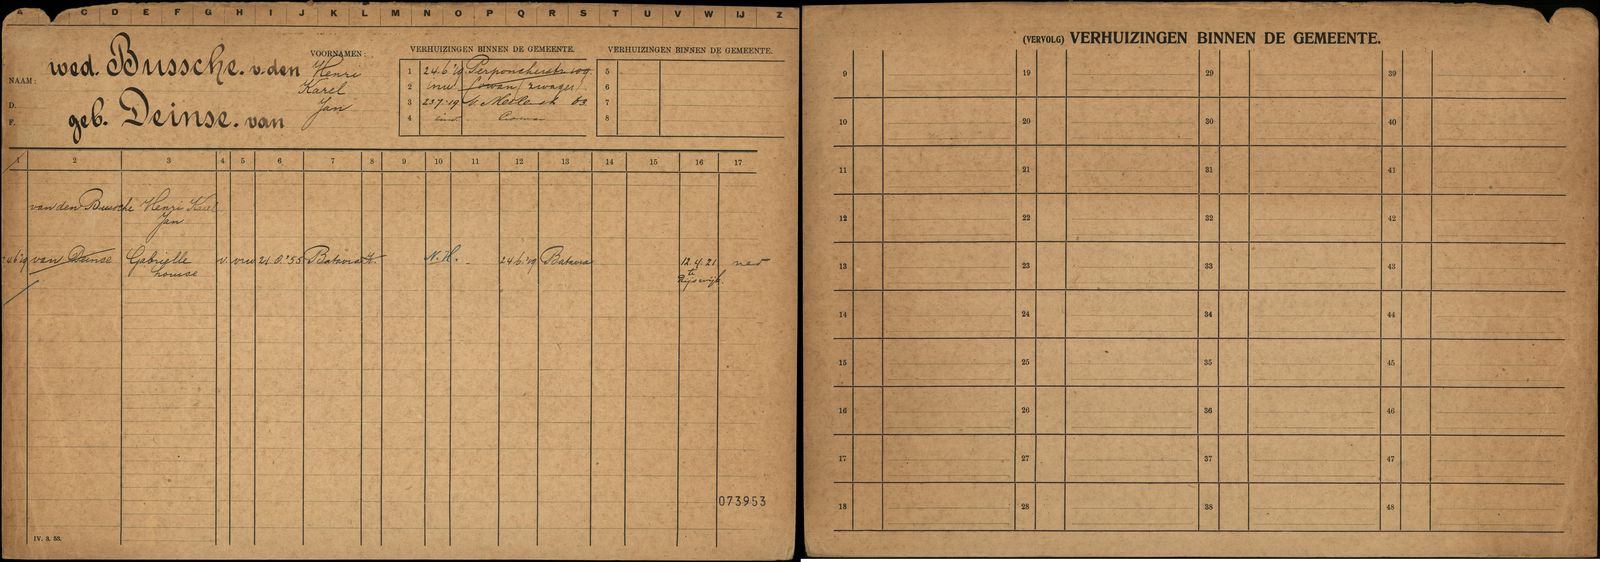 A C D E F G H I J K L M N O P Q R S T U V W IJ Z
NAAM:
D.
F.
wed. Bussche. v. den
geb. Deinse. van
VOORNAMEN:
Henri
Karel
Jan
VERHUIZINGEN BINNEN DE GEMEENTE.
1 24.6.'19 Perponcherstr 109.
2 inw zwager
3 23.7.'19 83
4 inw.
VERHUIZINGEN BINNEN DE GEMEENTE.
5
6
7
8
1 2 3 4 5 6 7 8 9 10 11 12 13 14 15 16 17
van den Bussche Henri Karel
Jan
24.6.'19 van Deinse Gabriëlle v. vrw '55 Batavia W. N.H. - 24.6.'19 Batavia 12.4.21 ned
Louise te
Rijswijk.
073953
IV. 3. 53.
(VERVOLG) VERHUIZINGEN BINNEN DE GEMEENTE.
9 19 29 39
10 20 30 40
11 21 31 41
12 22 32 42
13 23 33 43
14 24 34 44
15 25 35 45
16 26 36 46
17 27 37 47
18 28 38 48